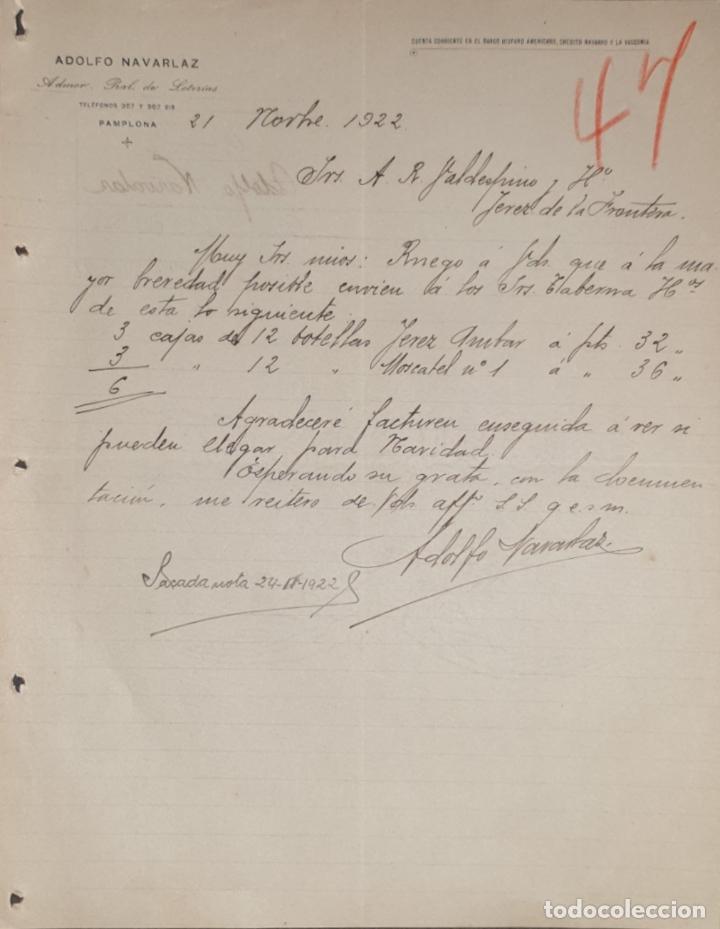 CUENTA CORRIENTE EN EL BANCO HISPANO AMERICANO, CRÉDITO NAVARRO Y LA VASCONIA
ADOLFO NAVARLAZ
Admor. Pral. de Loterías
TELÉFONOS 307 Y 307
PAMPLONA
47
21 Novbre. 1922
Srs. A. R. Valdespino y Hº
Jerez de la Frontera.
Muy Srs. mios: Ruego á Vds. que á la ma-
yor brevedad posible envien á los Srs. Taberna Hºs
de esta lo siguiente.
3 cajas de 12 botellas Jerez Ambar á pts. 32 „
3 „ 12 „ Moscatel nº 1 á „ 36 „
6
Agradeceré facturen enseguida á ver si
pueden llegar para Navidad.
Esperando su grata, con la documen-
tación, me reitero de Vds. affº S.S. q e s m.
Adolfo Navarlaz
Sacada nota 24-11-1922
todocoleccion.net